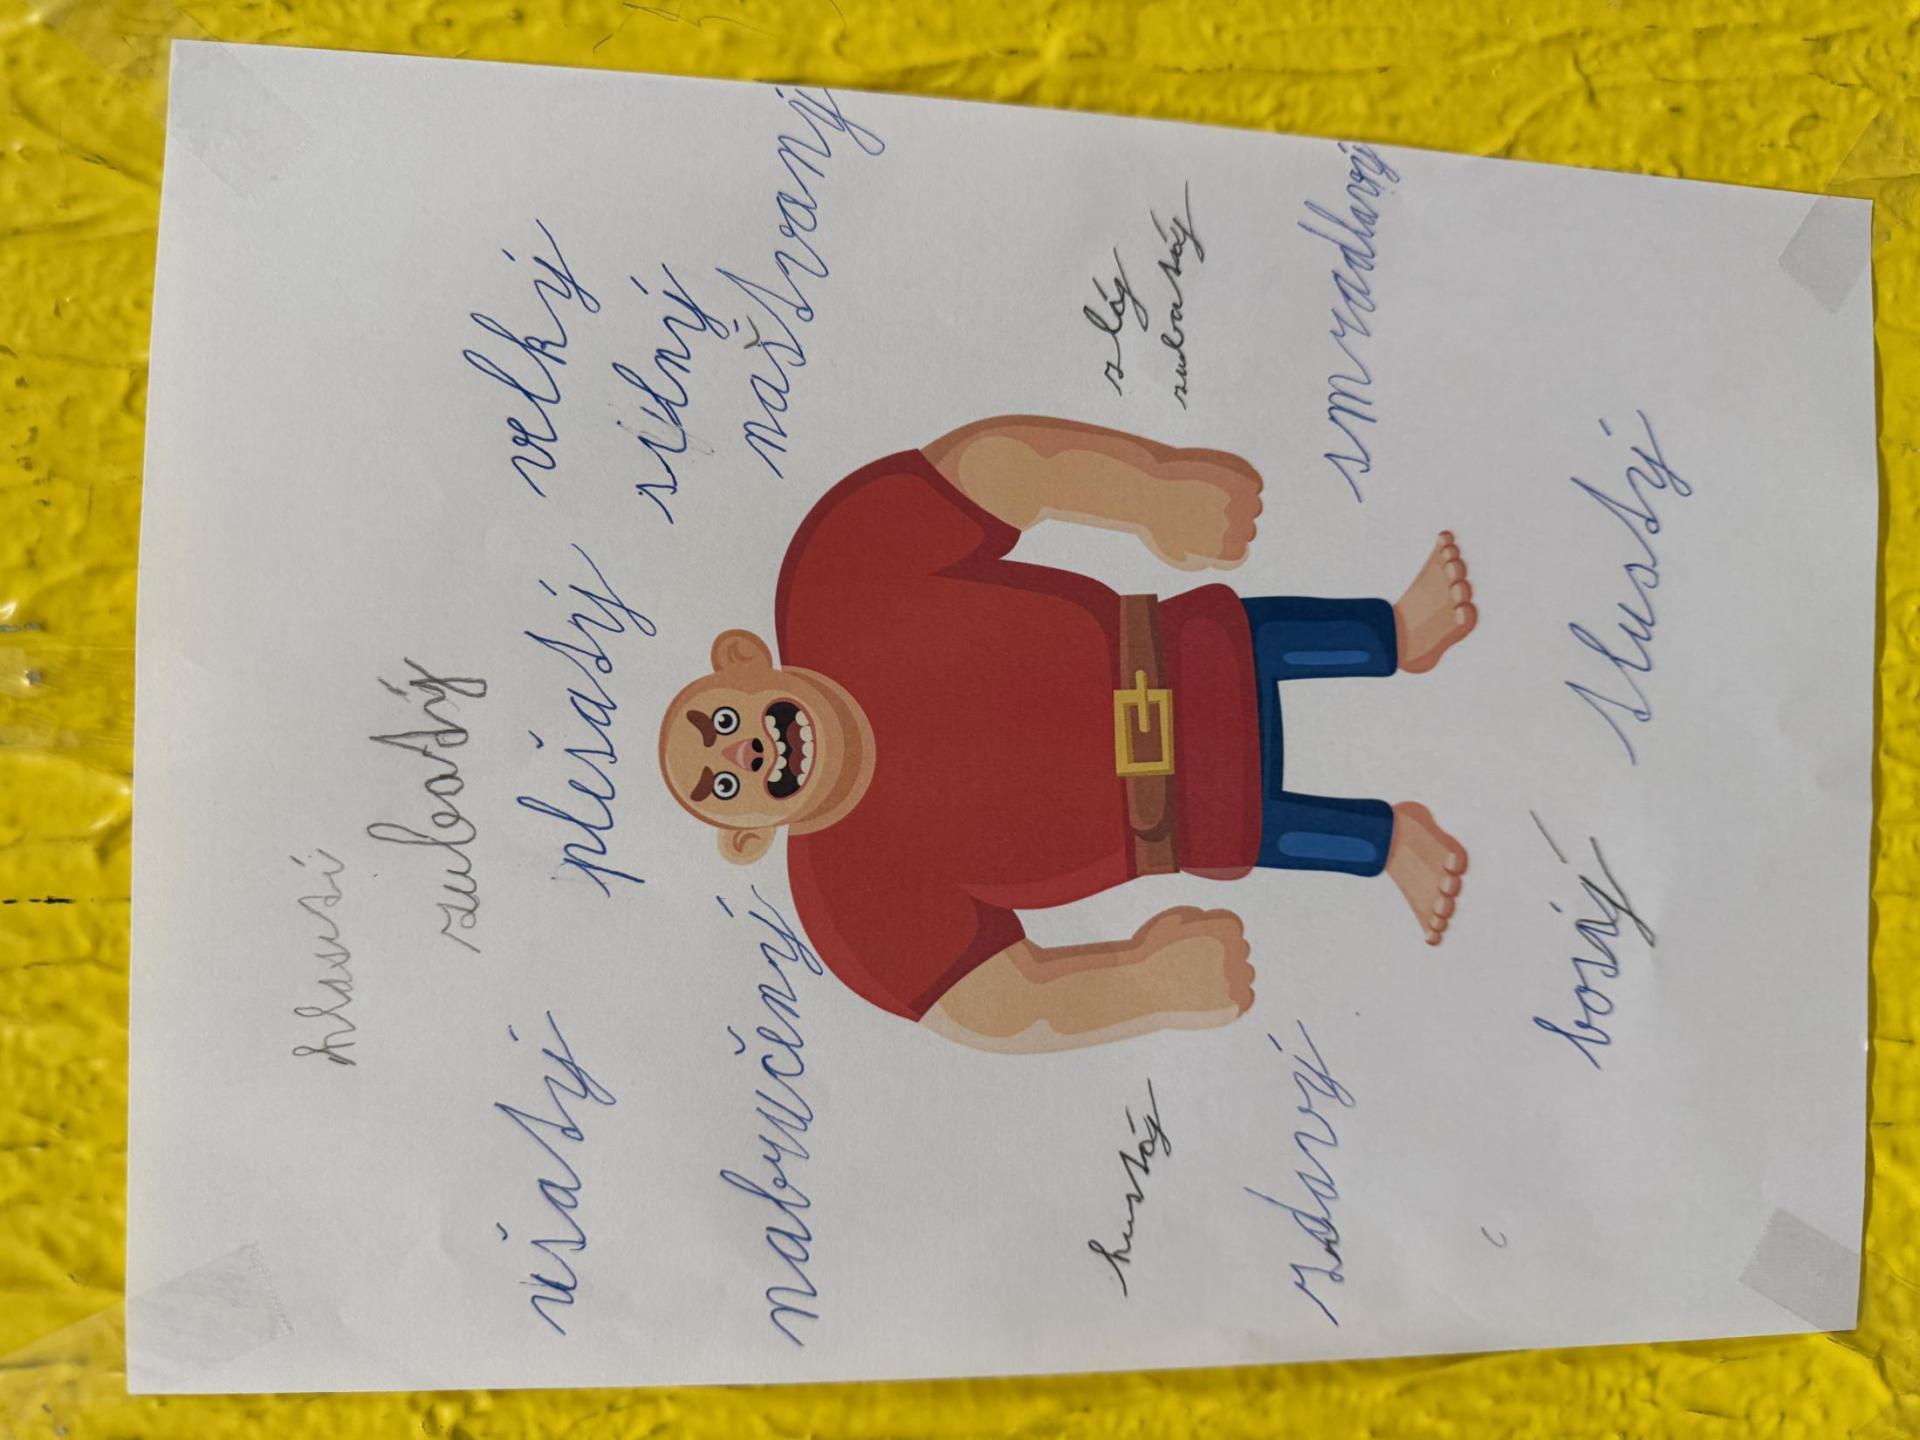 hlavsí
zubatý
ušatý
plešatý
velký
silný
naštvaný
nabručený
zlý
zubatý
hustý
zdraví
smradlaví
bosý
tlustý